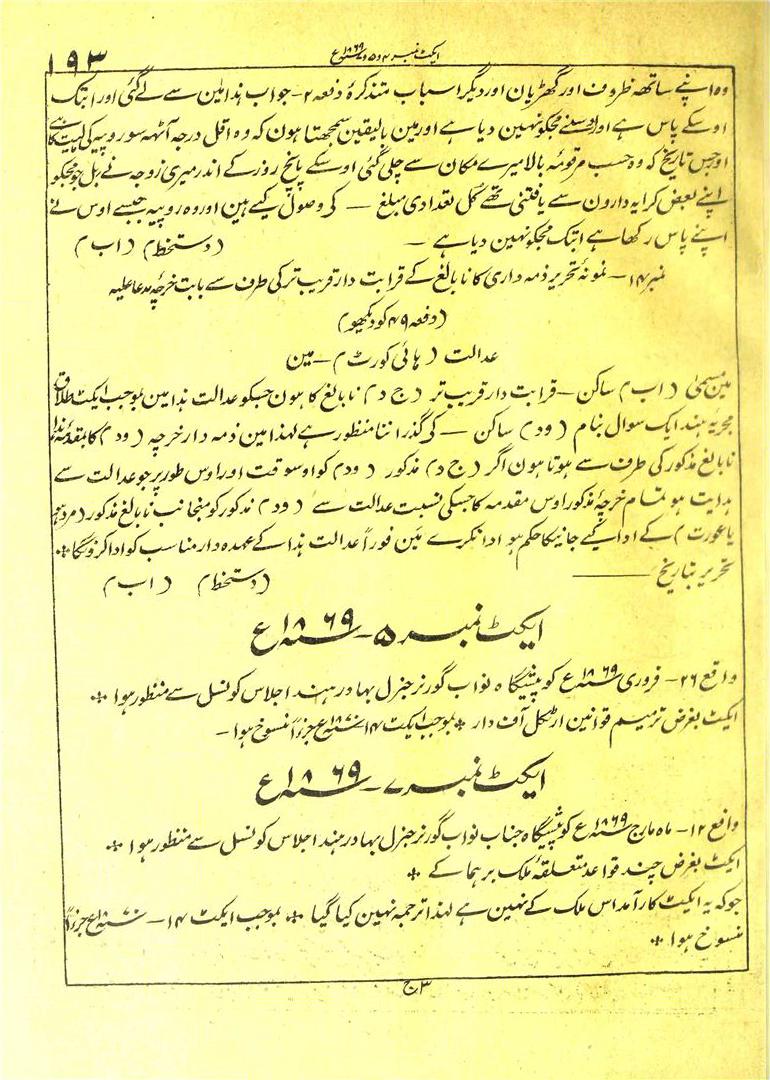 ایکٹ نمبر ۴ و ۵ و ۷ سنہ ۱۸۶۹ع
۱۹۳
وہ اپنے ساتھہ ظروف اور گھڑیان اور دیگر اسباب متذکرۂ دفعہ ۲- جواب ہذا مین سے لے گئی اور ابتک
اوسکے پاس ہے اور اوسنے مجکو نہین دیا ہے اور مین بالیقین سمجھتا ہون کہ وہ اقل درجہ آٹھہ سو روپیہ کی لیت کا ہے
اور جس تاریخ کہ وہ حسب مرقومہ بالا میرے مکان سے چلی گئی اوسکے پانچ روز کے اندر میری زوجہ نے بل جو مجکو
اپنے بعض کرایہ دارون سے یافتنی تھے کل تعدادی مبلغ — کی وصول کیے ہین اور وہ روپیہ جسے اوس نے
اپنے پاس رکھا ہے ابتک مجکو نہین دیا ہے — (دستخط) (اب)
نمبر ۱۴- نمونۂ تحریر ذمہ داری کا نابالغ کے قرابت دار قریب تر کی طرف سے بابت خرچۂ مدعا علیہ
(دفعہ ۴۹ کو دیکھو)
عدالت (ہائی کورٹ) — مین
مین مسمیٰ (اب) ساکن — قرابت دار قریب تر (ج د) نابالغ کا ہون جسکو عدالت ہذا مین بموجب ایکٹ طلاق
مجریۂ ہند ایک سوال بنام (ود) ساکن — کی گذراننا منظور ہے لہذا مین ذمہ دار خرچہ (ود) کا بمقدمہ ہذا
نابالغ مذکور کی طرف سے ہوتا ہون اگر (ج د) مذکور (ود) کو اوسوقت اور اوس طور پر جو عدالت سے
ہدایت ہو تمام خرچۂ مذکور اوس مقدمہ کا جسکی نسبت عدالت سے (ود) مذکور کو منجانب نابالغ مذکور (مرد ہو
یا عورت) کے ادا کیے جانیکا حکم ہو ادا نکرے مین فوراً عدالت ہذا کے عہدہ دار مناسب کو ادا کرونگا ⁘
تحریر بتاریخ — (دستخط) (اب)
ایکٹ نمبر ۵- سنہ ۱۸۶۹ع
واقع ۲۶- فروری سنہ ۱۸۶۹ع کو پیشگاہ نواب گورنر جنرل بہادر ہند اجلاس کونسل سے منظور ہوا ⁘
ایکٹ بغرض ترمیم قوانین ارٹکل آف دار ⁘ بموجب ایکٹ ۱۴ سنہ ۱۸۷۰ع جزءاً منسوخ ہوا -
ایکٹ نمبر ۷- سنہ ۱۸۶۹ع
واقع ۱۲- ماہ مارچ سنہ ۱۸۶۹ع کو پیشگاہ جناب نواب گورنر جنرل بہادر ہند اجلاس کونسل سے منظور ہوا ⁘
ایکٹ بغرض چند قواعد متعلقۂ ملک برہما کے ⁘
جوکہ یہ ایکٹ کارآمد اس ملک کے نہین ہے لہذا ترجمہ نہین کیا گیا ⁘ بموجب ایکٹ ۱۴- سنہ ۱۸۷۰ع جزءاً
منسوخ ہوا ⁘
ج۳